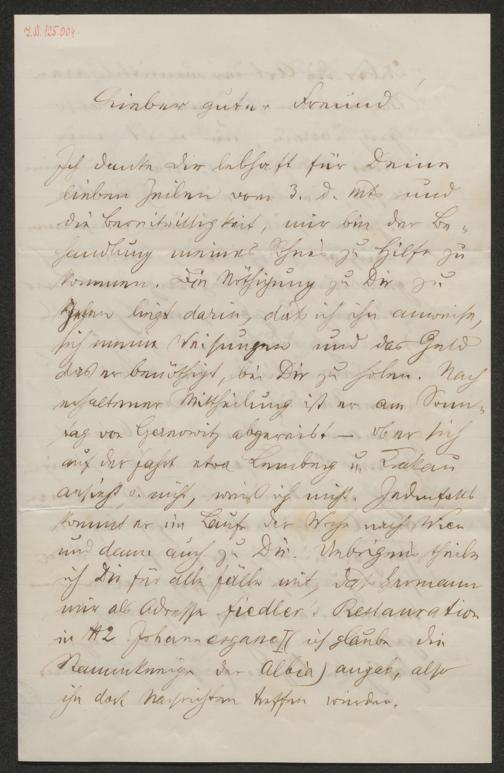 I.N. 125.004
Lieber guter Freund!
Ich danke Dir lebhaft für Deine
lieben Zeilen vom 3. d. Mts und
die Bereitwilligkeit, mir bei der Be-
handlung meines Sohnes zu Hilfe zu
kommen. Die Nöthigung zu Dir zu
gehen liegt darin, daß ich ihn anweise,
sich meine Weisungen und das Geld
das er benöthigt, bei Dir zu holen. Nach
erhaltener Mittheilung ist er am Sonn-
tag von Czernowitz abgereist – ob er sich
auf der Fahrt etwa Lemberg u. Krakau
ansieht o. nicht, weiß ich nicht. Jedenfalls
kommt er im Lauf der Woche nach Wien
und dann auch zu Dir. Uebrigens theile
ich Dir für alle Fälle mit, daß Hermann
mir als Adresse Fiedler's Restauration
in No 2 Johannesgasse I (ich glaube die
Stammkneipe der Albia) angab, also
ihn dort Nachrichten treffen würden.